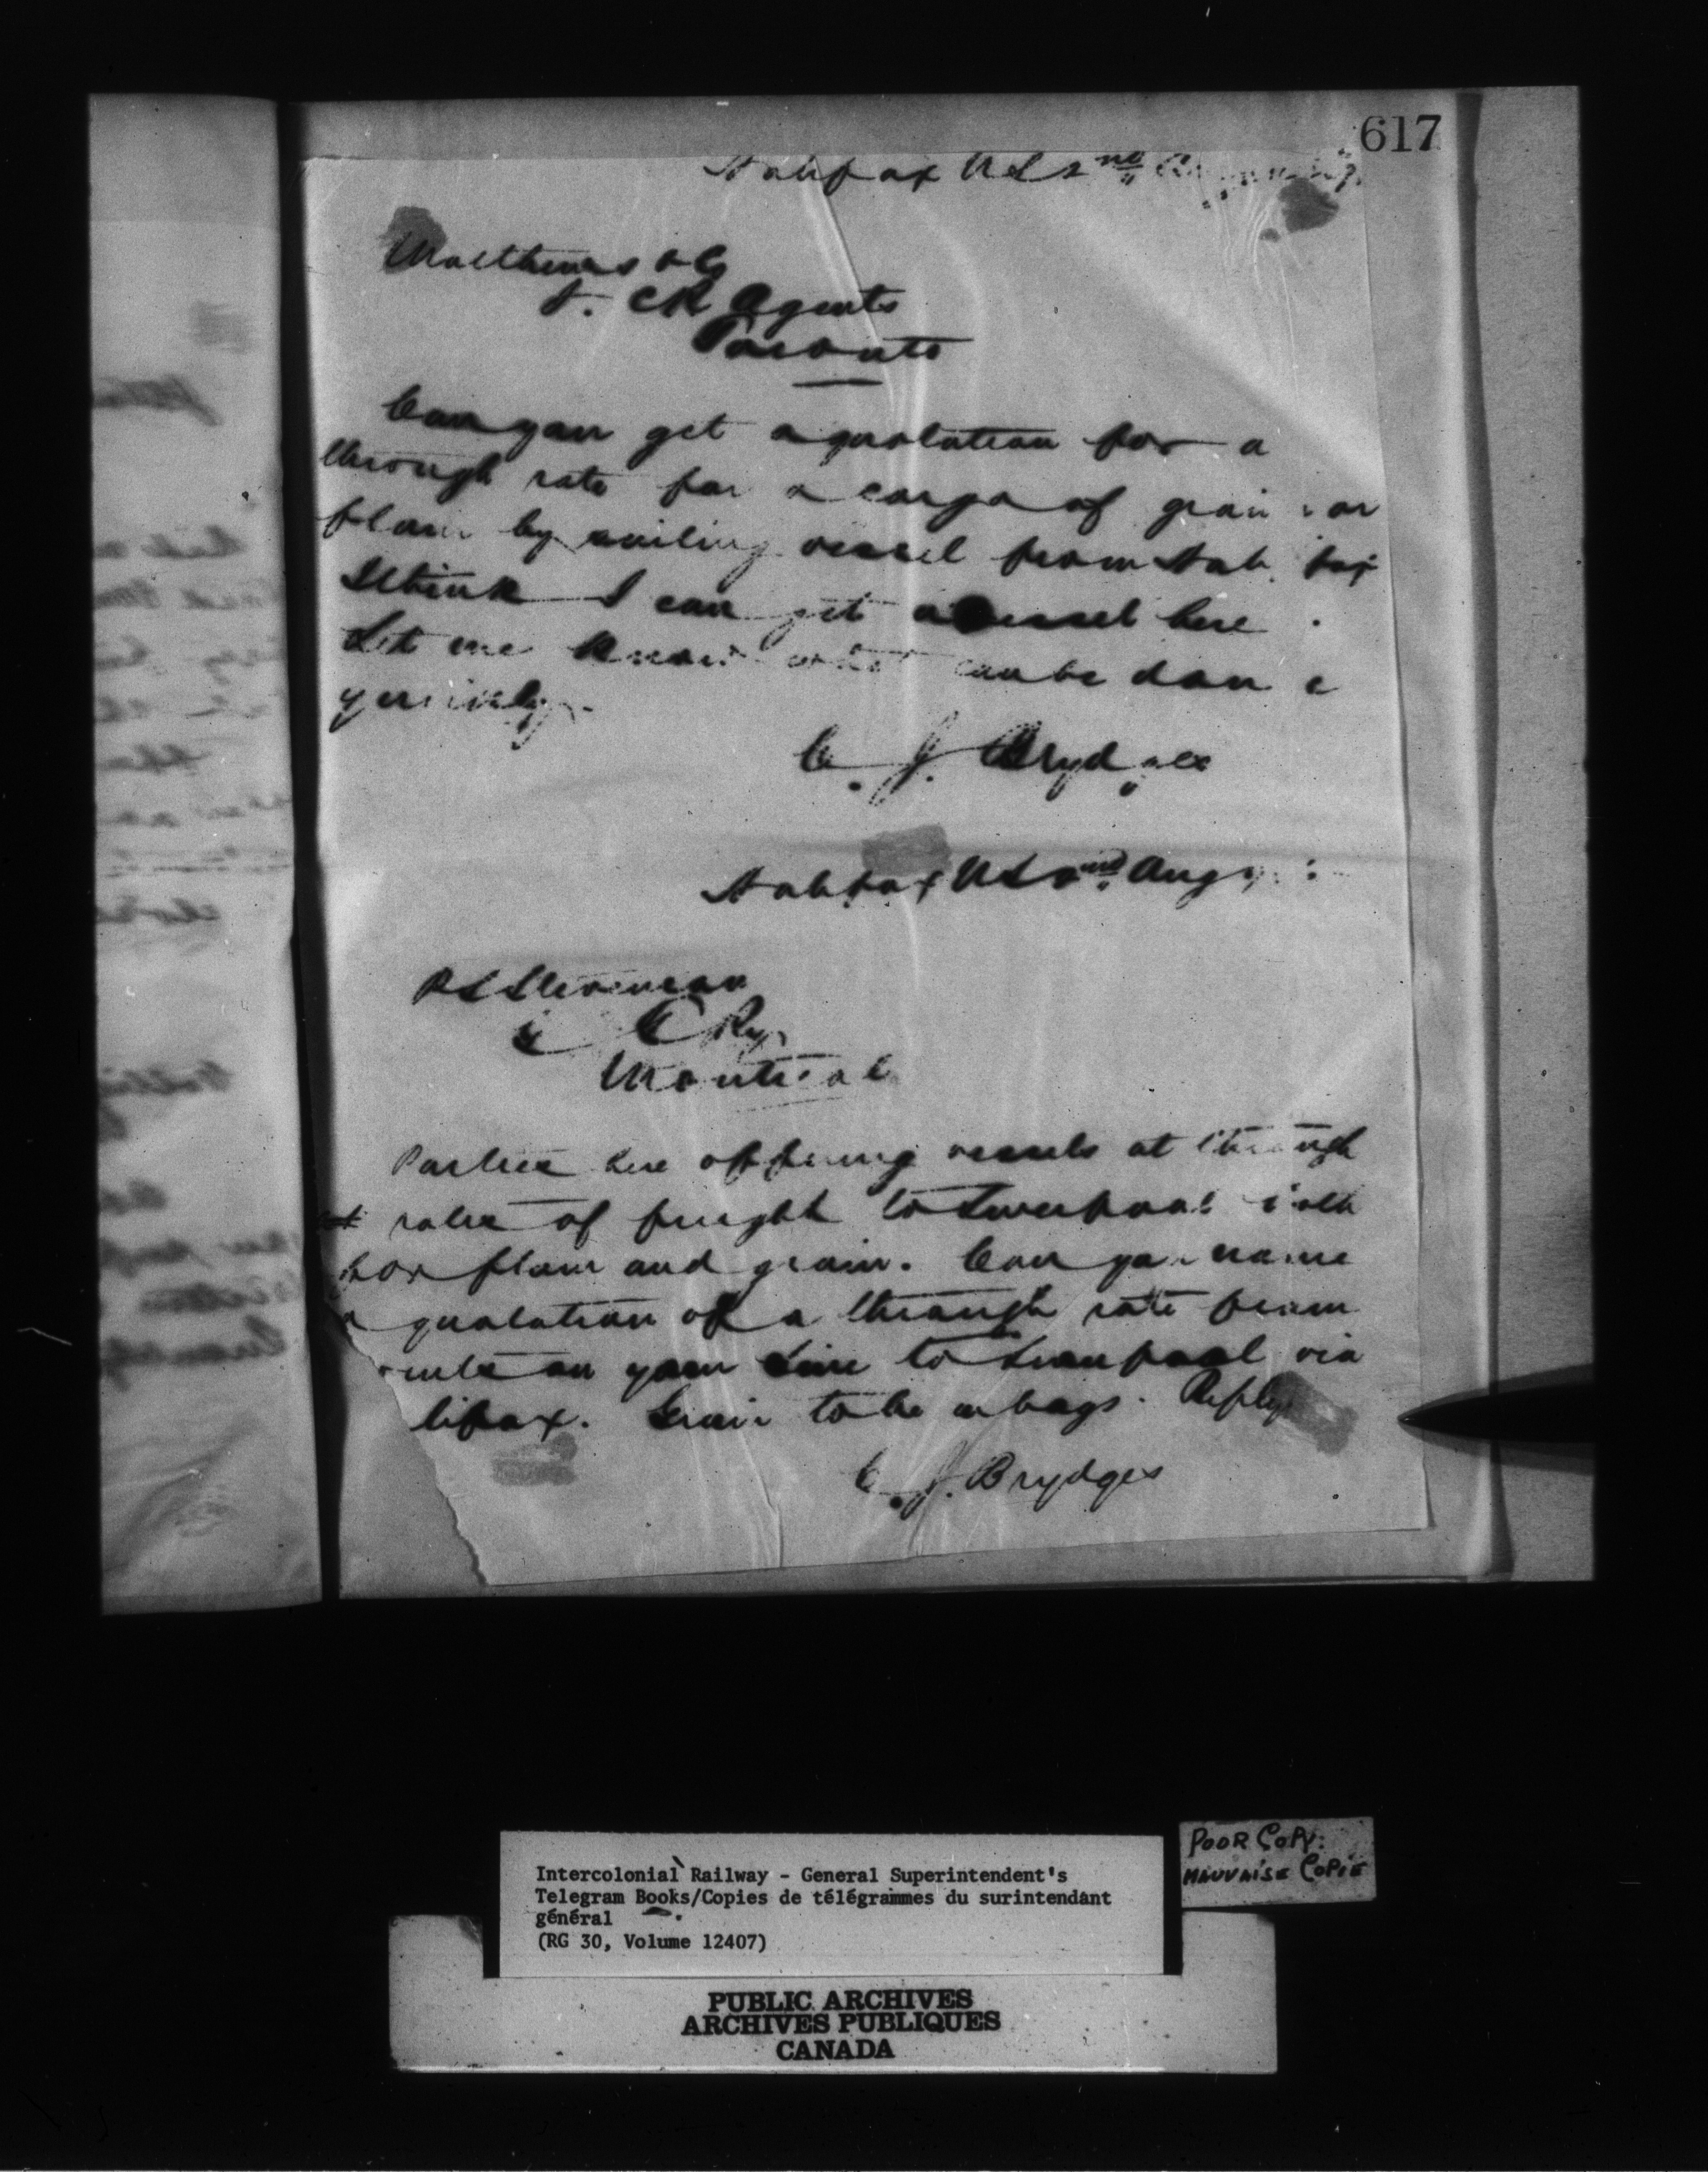 617
Halifax NS 2nd
Matthews & Co
I. CR Agents
Toronto
Can you get a quotation for a
through rate for a cargo of grain or
flour by sailing vessel from Halifax
I think I can get a vessel here.
Let me know what can be done
C. J. Brydges
Halifax NS 2nd Aug
P S Stevenson
G T Ry
Montreal
Parties here offering vessels at through
rates of freight to Liverpool both
for flour and grain. Can you name
a quotation of a through rate from
on your line to Liverpool via
lifax. Grain to be in bags. Reply
C. J. Brydges
Intercolonial Railway - General Superintendent's
Telegram Books/Copies de télégrammes du surintendant
général
(RG 30, Volume 12407)
POOR COPY:
MAUVAISE COPIE
PUBLIC ARCHIVES
ARCHIVES PUBLIQUES
CANADA